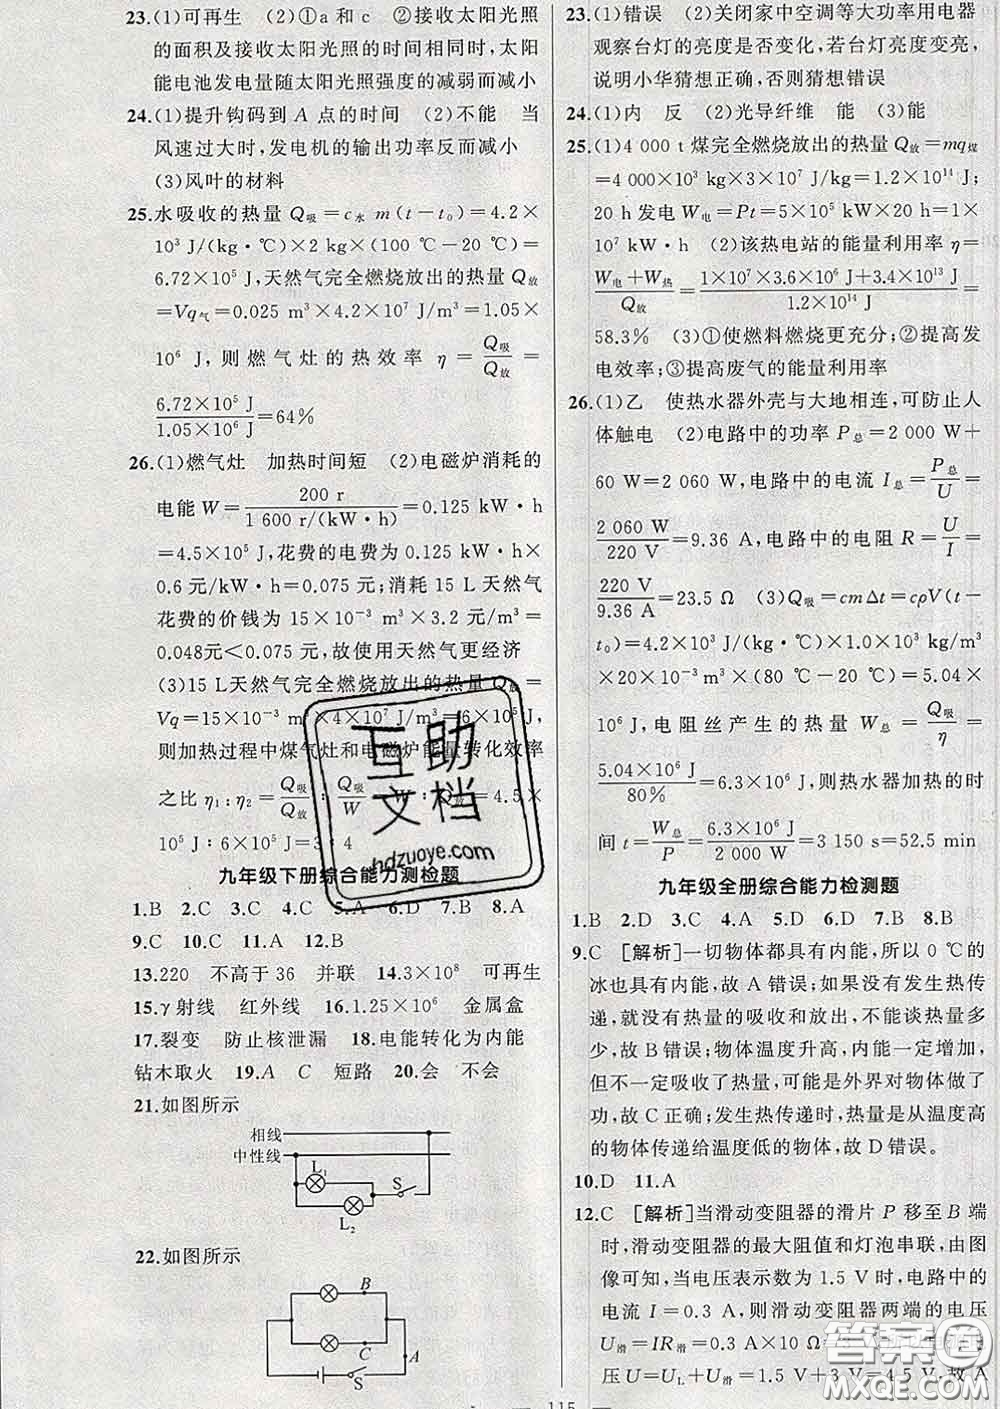 23.(1)可再生　(2)①a和c　②接收太阳光照
的面积及接收太阳光照的时间相同时,太阳
能电池发电量随太阳光照强度的减弱而减小
24.(1)提升钩码到A点的时间　(2)不能　当
风速过大时,发电机的输出功率反而减小
(3)风叶的材料
25.水吸收的热量Q吸=c水 m(t-t₀)=4.2×
10³ J/(kg·℃)×2 kg×(100 ℃-20 ℃)=
6.72×10⁵ J,天然气完全燃烧放出的热量Q放
=Vq气=0.025 m³×4.2×10⁷ J/m³=1.05×
10⁶ J,则燃气灶的热效率 η=Q吸/Q放=
6.72×10⁵ J/1.05×10⁶ J=64%
26.(1)燃气灶　加热时间短　(2)电磁炉消耗的
电能W=200 r/1 600 r/(kW·h)=0.125 kW·h
=4.5×10⁵ J,花费的电费为0.125 kW·h×
0.6元/kW·h=0.075元;消耗15 L天然气
花费的价钱为15×10⁻³ m³×3.2元/m³=
0.048元<0.075元,故使用天然气更经济
(3)15 L天然气完全燃烧放出的热量Q放=
Vq=15×10⁻³ m³×4×10⁷ J/m³=6×10⁵ J,
则加热过程中煤气灶和电磁炉能量转化效率
之比η₁:η₂=Q吸/Q放:Q吸/W=W:Q放=4.5×
10⁵ J:6×10⁵ J=3:4
九年级下册综合能力测检题
1.B　2.C　3.C　4.C　5.A　6.D　7.B　8.A
9.C　10.C　11.A　12.B
13.220　不高于36　并联　14.3×10⁸　可再生
15.γ射线　红外线　16.1.25×10⁶　金属盒
17.裂变　防止核泄漏　18.电能转化为内能
钻木取火　19.A　C　短路　20.会　不会
21.如图所示
相线
中性线
L₁
S
L₂
22.如图所示
B
C
A
S
23.(1)错误　(2)关闭家中空调等大功率用电器
观察台灯的亮度是否变化,若台灯亮度变亮,
说明小华猜想正确,否则猜想错误
24.(1)内　反　(2)光导纤维　能　(3)能
25.(1)4 000 t煤完全燃烧放出的热量Q放=mq煤
=4 000×10³ kg×3×10⁷ J/kg=1.2×10¹⁴ J;
20 h发电W电=Pt=5×10⁵ kW×20 h=1×
10⁷ kW·h　(2)该热电站的能量利用率η=
W电+W热/Q放=1×10⁷×3.6×10⁶ J+3.4×10¹³ J/1.2×10¹⁴ J=
58.3%　(3)①使燃料燃烧更充分;②提高发
电效率;③提高废气的能量利用率
26.(1)乙　使热水器外壳与大地相连,可防止人
体触电　(2)电路中的功率P总=2 000 W+
60 W=2 060 W,电路中的电流I总=P总/U=
2 060 W/220 V=9.36 A,电路中的电阻R=U/I=
220 V/9.36 A=23.5 Ω　(3)Q吸=cmΔt=cρV(t-
t₀)=4.2×10³ J/(kg·℃)×1.0×10³ kg/m³
×20×10⁻³m³×(80 ℃-20 ℃)=5.04×
10⁶ J,电阻丝产生的热量W总=Q吸/η=
5.04×10⁶ J/80%=6.3×10⁶ J,则热水器加热的时
间t=W总/P=6.3×10⁶ J/2 000 W=3 150 s=52.5 min
九年级全册综合能力检测题
1.B　2.D　3.C　4.A　5.D　6.D　7.B　8.B
9.C　[解析]一切物体都具有内能,所以0 ℃的
冰也具有内能,故A错误;如果没有发生热传
递,就没有热量的吸收和放出,不能谈热量多
少,故B错误;物体温度升高,内能一定增加,
但不一定吸收了热量,可能是外界对物体做了
功,故C正确;发生热传递时,热量是从温度高
的物体传递给温度低的物体,故D错误。
10.D　11.A
12.C　[解析]当滑动变阻器的滑片P移至B端
时,滑动变阻器的最大阻值和灯泡串联,由图
像可知,当电压表示数为1.5 V时,电路中的
电流I=0.3 A,则滑动变阻器两端的电压
U滑=IR滑=0.3 A×10 Ω
压U=UL+U滑=1.5 V+3 V=4.5 V,故A
115
互助
文档
hdzuoye.com
答案圈
MXQE.COM